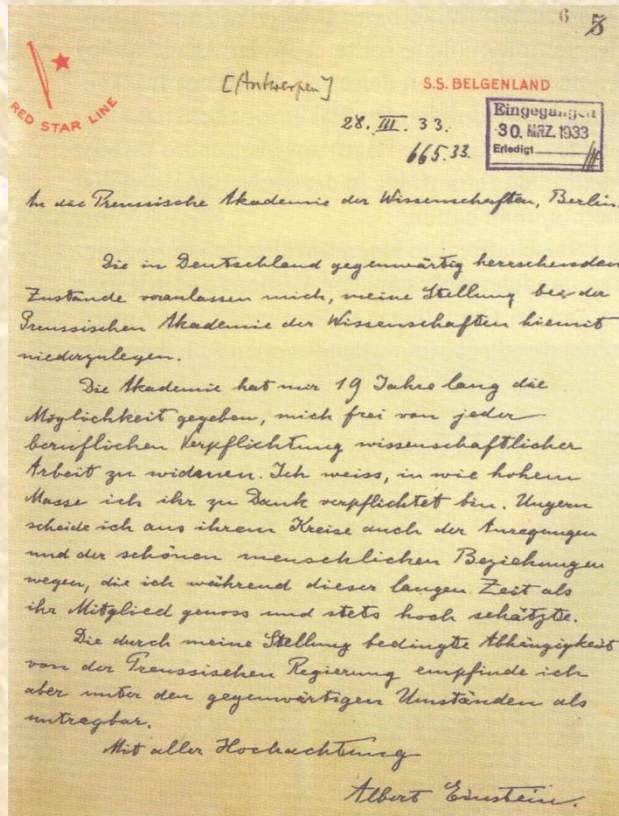 6 5
RED STAR LINE
[Antwerpen]
S.S. BELGENLAND
28. III. 33.
Eingegangen
30. MRZ. 1933
Erledigt
665.33.
An die Preussische Akademie der Wissenschaften, Berlin.
Die in Deutschland gegenwärtig herrschenden
Zustände veranlassen mich, meine Stellung bei der
Preussischen Akademie der Wissenschaften hiemit
niederzulegen.
Die Akademie hat mir 19 Jahre lang die
Möglichkeit gegeben, mich frei von jeder
beruflichen Verpflichtung wissenschaftlicher
Arbeit zu widmen. Ich weiss, in wie hohem
Masse ich ihr zu Dank verpflichtet bin. Ungern
scheide ich aus ihrem Kreise auch der Anregungen
und der schönen menschlichen Beziehungen
wegen, die ich während dieser langen Zeit als
ihr Mitglied genoss und stets hoch schätzte.
Die durch meine Stellung bedingte Abhängigkeit
von der Preussischen Regierung empfinde ich
aber unter den gegenwärtigen Umständen als
untragbar.
Mit aller Hochachtung
Albert Einstein.